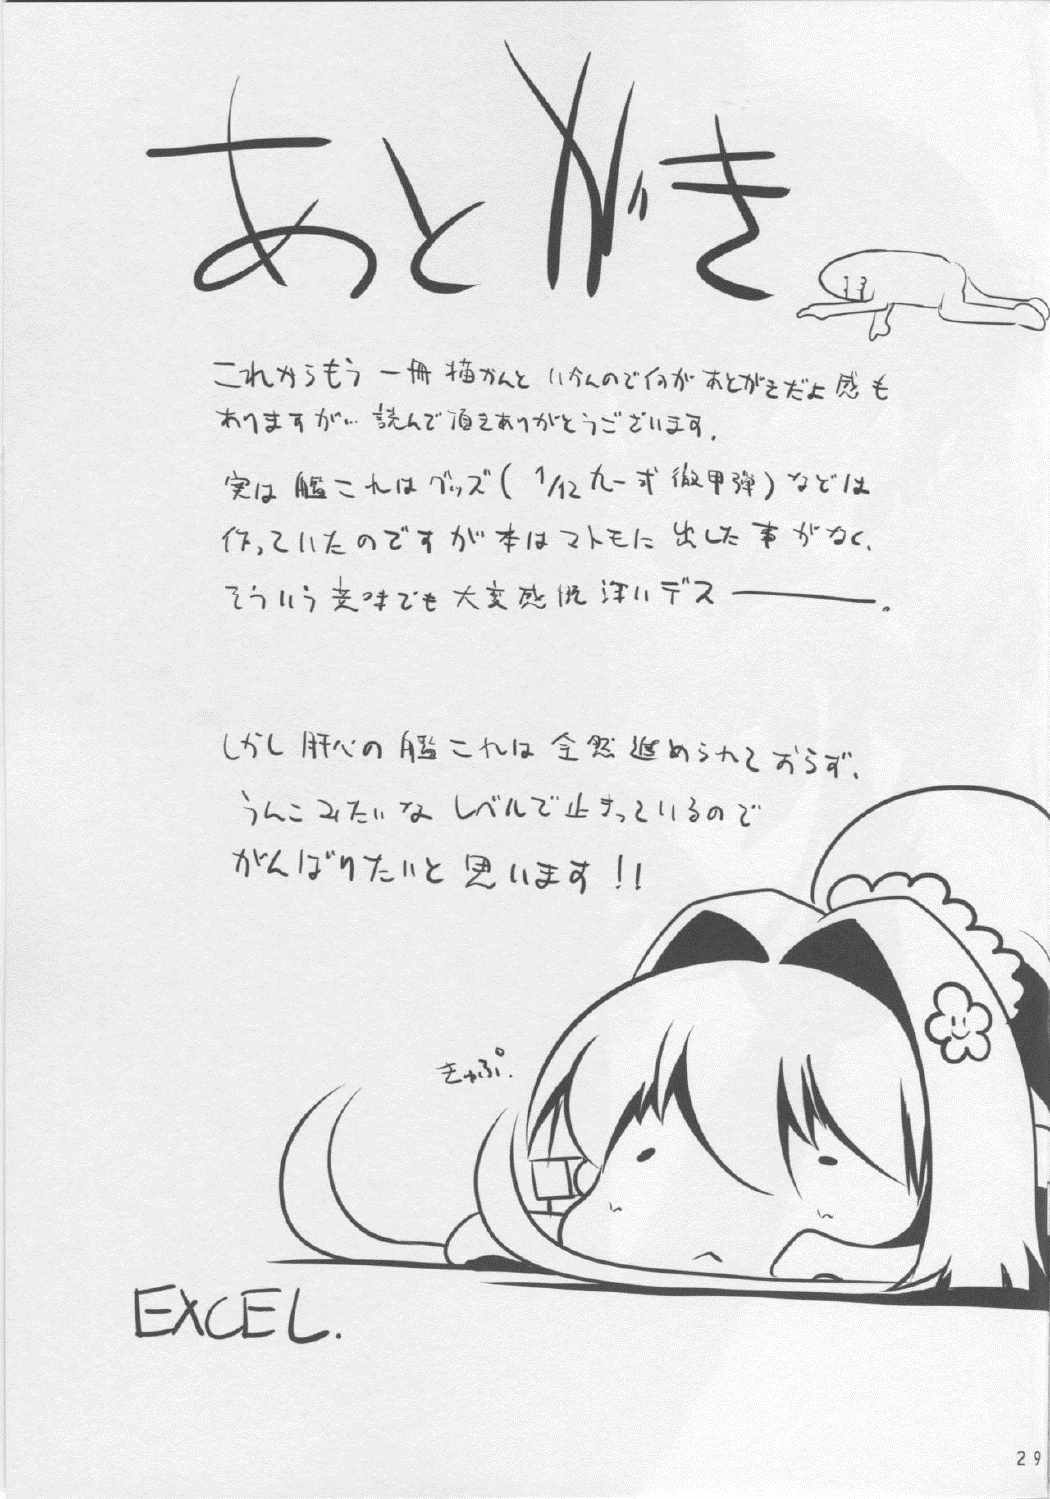 あとがき
これからもう一冊描かんといかんので何があとがきだよ感も
ありますが…読んで頂きありがとうございます.
実は艦これはグッズ(1/12九一式徹甲弾)などは
作っていたのですが本はマトモに出した事がなく、
そういう意味でも大変感慨深いデス―――.
しかし肝心の艦これは全然進められておらず、
うんこみたいなレベルで止まっているので
がんばりたいと思います!!
きゅぷ.
EXCEL.
29